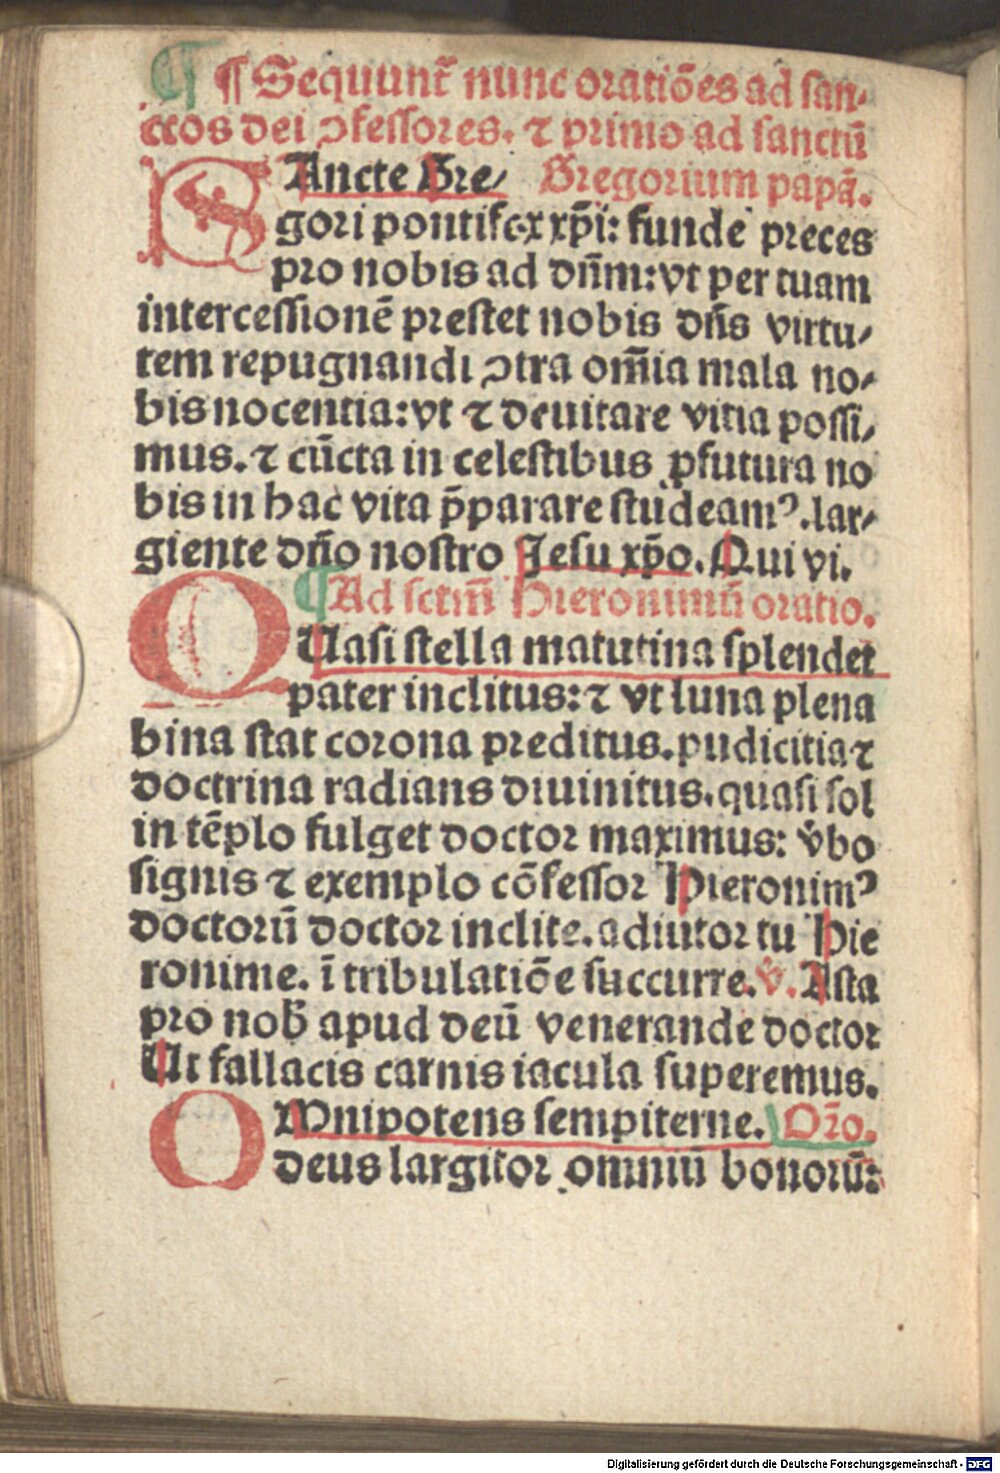 ¶ ¶ Sequunt̃ nunc oratiões ad san-
ctos dei ↄfessores. ⁊ primo ad sanctũ
SAncte Gre/ Gregorium papã.
gori pontifex xp̃i: funde preces
pro nobis ad dñm: vt per tuam
intercessionẽ prestet nobis dñs virtu/
tem repugnandi ↄtra om̃ia mala no/
bis nocentia: vt ⁊ deuitare vitia possi/
mus. ⁊ cũcta in celestibus ꝓfutura no
bis in hac vita p̃parare studeamꝰ. lar/
giente dño nostro Jesu xp̃o. Qui vi.
¶ Ad sctm̃ Hieronimũ oratio.
QUasi stella matutina splendet
pater inclitus: ⁊ vt luna plena
bina stat corona preditus. pudicitia ⁊
doctrina radians diuinitus. quasi sol
in tẽplo fulget doctor maximus: v̾bo
signis ⁊ exemplo cõfessor Hieronimꝰ
doctorũ doctor inclite. adiutor tu Hie
ronime. ĩ tribulatiõe succurre. ℣. Asta
pro nob̃ apud deũ venerande doctor
Ut fallacis carnis iacula superemus.
OMnipotens sempiterne. Or̃o.
deus largitor omniũ bonorũ:
Digitalisierung gefördert durch die Deutsche Forschungsgemeinschaft - DFG